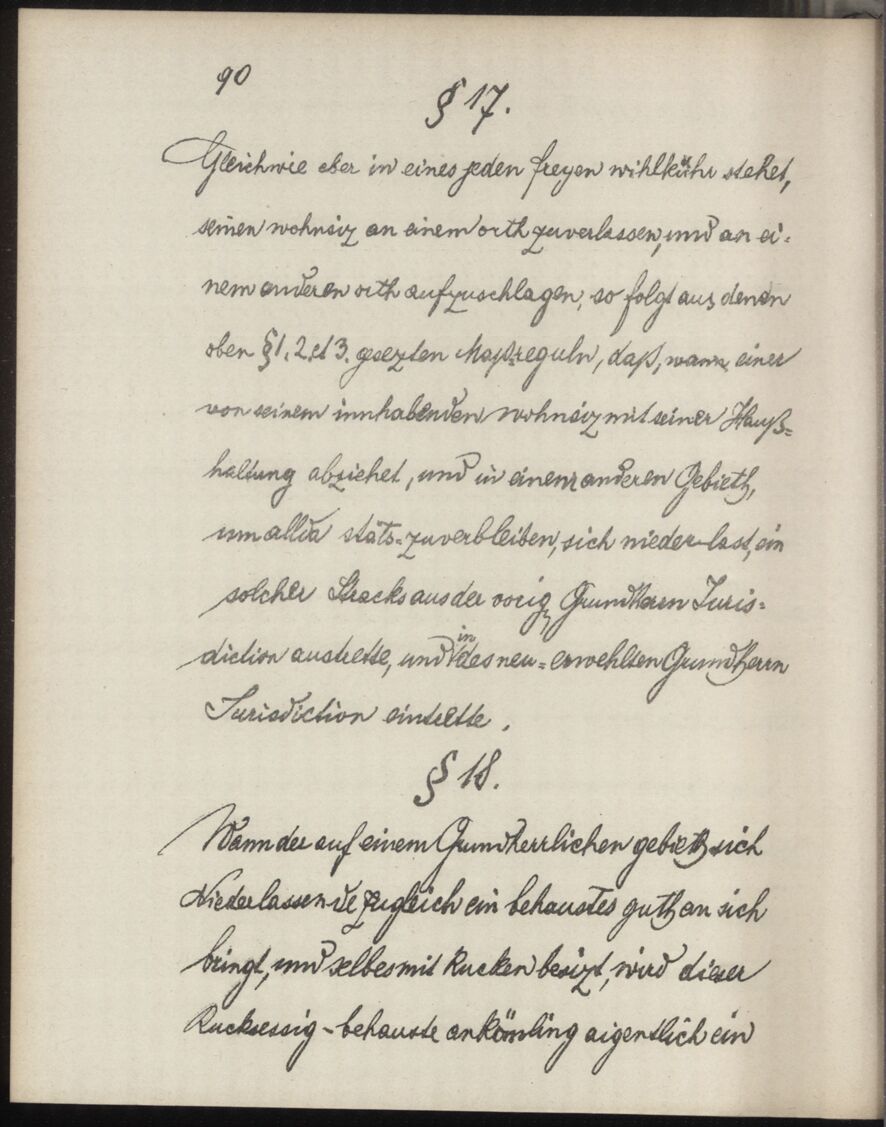 90
§ 17.
Gleichwie aber in eines jeden freyen wihlkühr stehet,
seinen wohnsiz an einem orth zuverlassen, und an ei-
nem anderen orth aufzuschlagen, so folgt aus denen
oben § 1. 2. et 3. gesezten Maßreguln, daß, wann einer
von seinem innhabenden wohnsiz mit seiner Hauß=
haltung abziehet, und in einem anderen Gebieth,
um allda stäts=zuverbleiben, sich nieder-last, ein
solcher Stracks aus der vorig Grundherrn Juris=
diction austrette, und in des neu=erwehlten Grundherrn
Jurisdiction eintrette.
§ 18.
Wann der auf einem Grundherrlichen gebieth sich
Niederlassende zugleich ein behaustes guth an sich
bringt, und selbes mit Rucken besizt, wird dieser
Rucksessig-behauste ankömling aigentlich ein